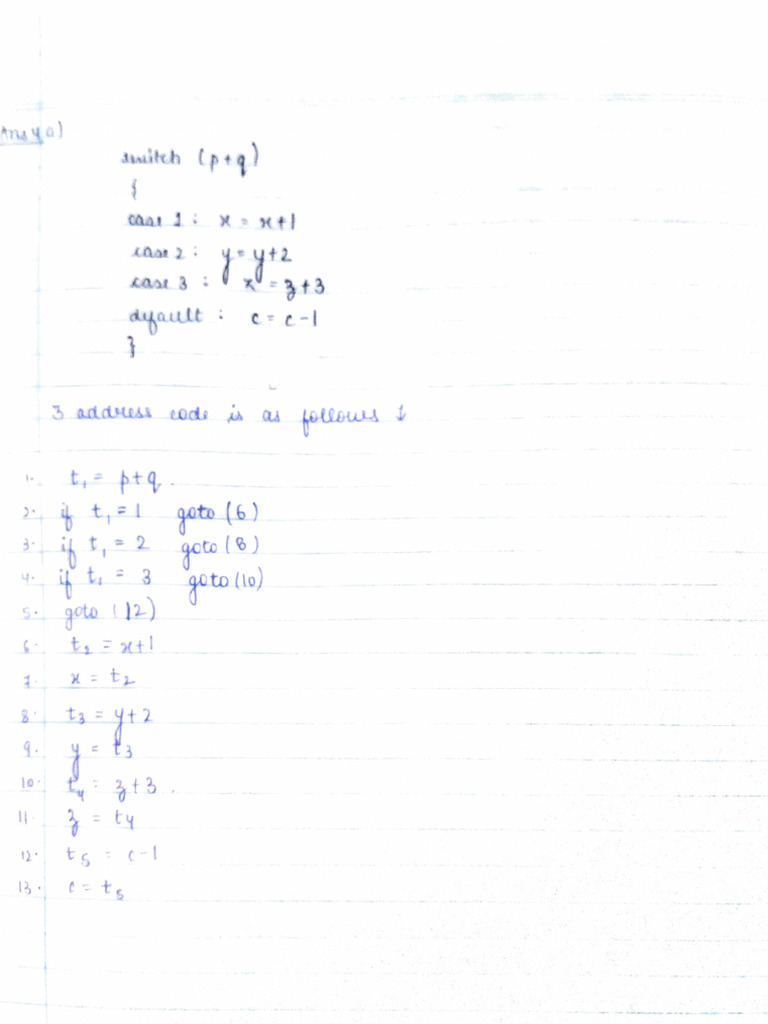 Ans 4 a)
switch (p+q)
{
case 1 : x = x+1
case 2 : y = y+2
case 3 : x = z+3
default : c = c-1
}
3 address code is as follows ↓
1. t₁ = p+q.
2. if t₁ = 1 goto (6)
3. if t₁ = 2 goto (8)
4. if t₁ = 3 goto (10)
5. goto (12)
6. t₂ = x+1
7. x = t₂
8. t₃ = y+2
9. y = t₃
10. t₄ = z+3.
11. z = t₄
12. t₅ = c-1
13. c = t₅